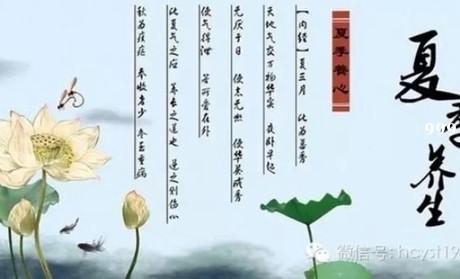 夏季养生
夏季養心
【内经】夏三月 此为蕃秀
天地气交万物华实 夜卧早起
无厌于日 使志无怒 使华英成秀
使气得泄 若所爱在外
此夏气之应 养长之道也 逆之则伤心
秋为痎疟 奉收者少 冬至重病
微信号: hcyst19